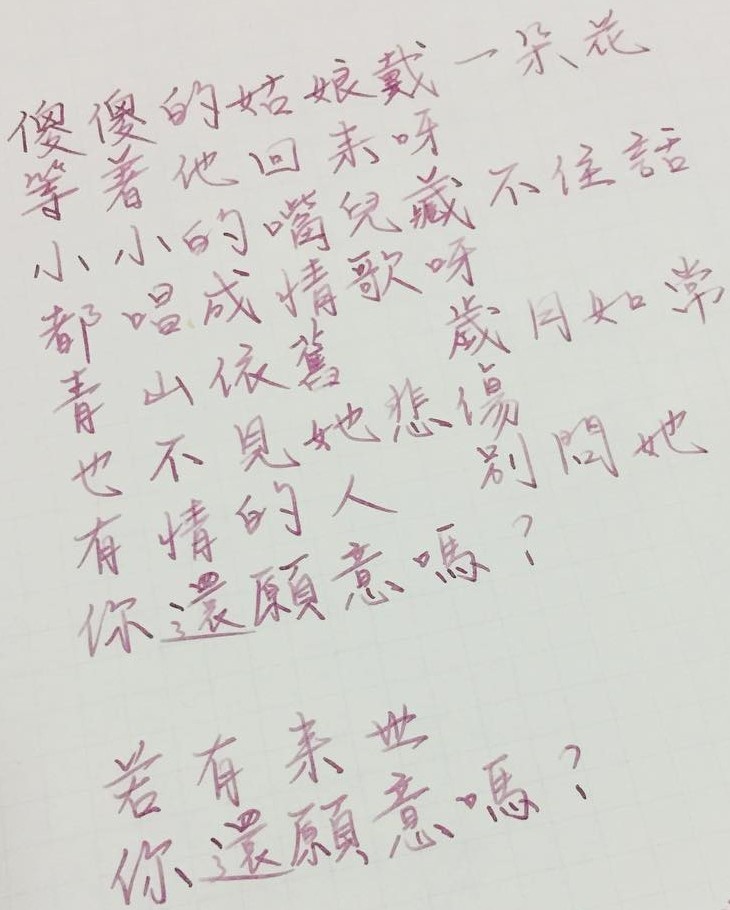 傻傻的姑娘戴一朵花
等著他回來呀
小小的嘴兒藏不住話
都唱成情歌呀
青山依舊 歲月如常
也不見她悲傷
有情的人 別問她
你還願意嗎？
若有來世
你還願意嗎？